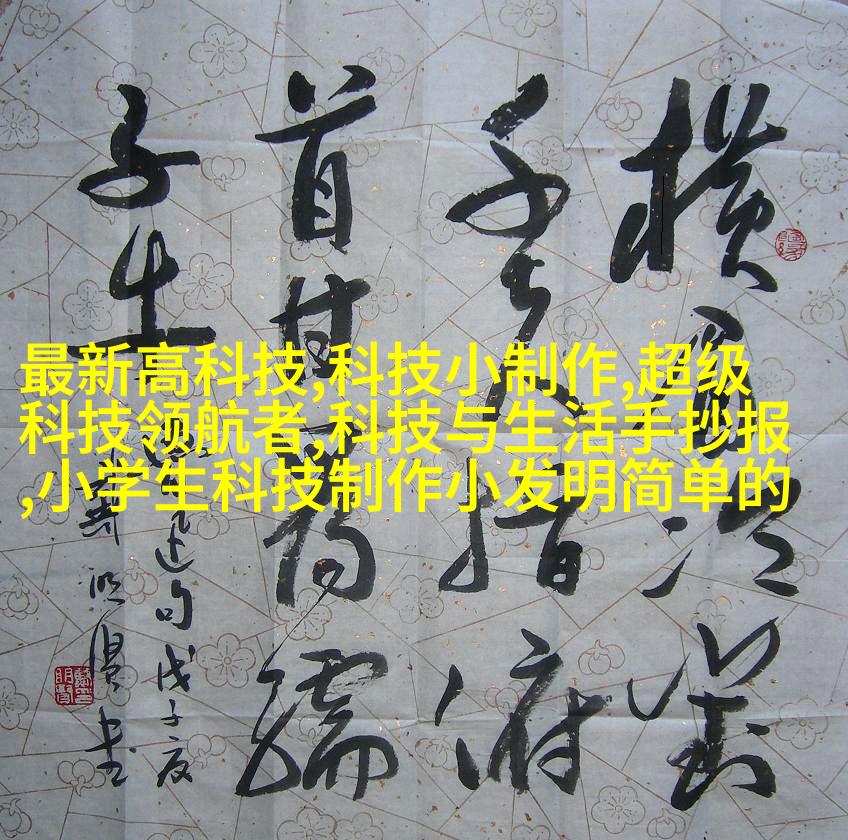 最新高科技,科技小制作,超级
科技领航者,科技与生活手抄报
,小学生科技制作小发明简单的
横眉冷對
千夫指俯
首甘為孺
子牛
迅句戊子夏